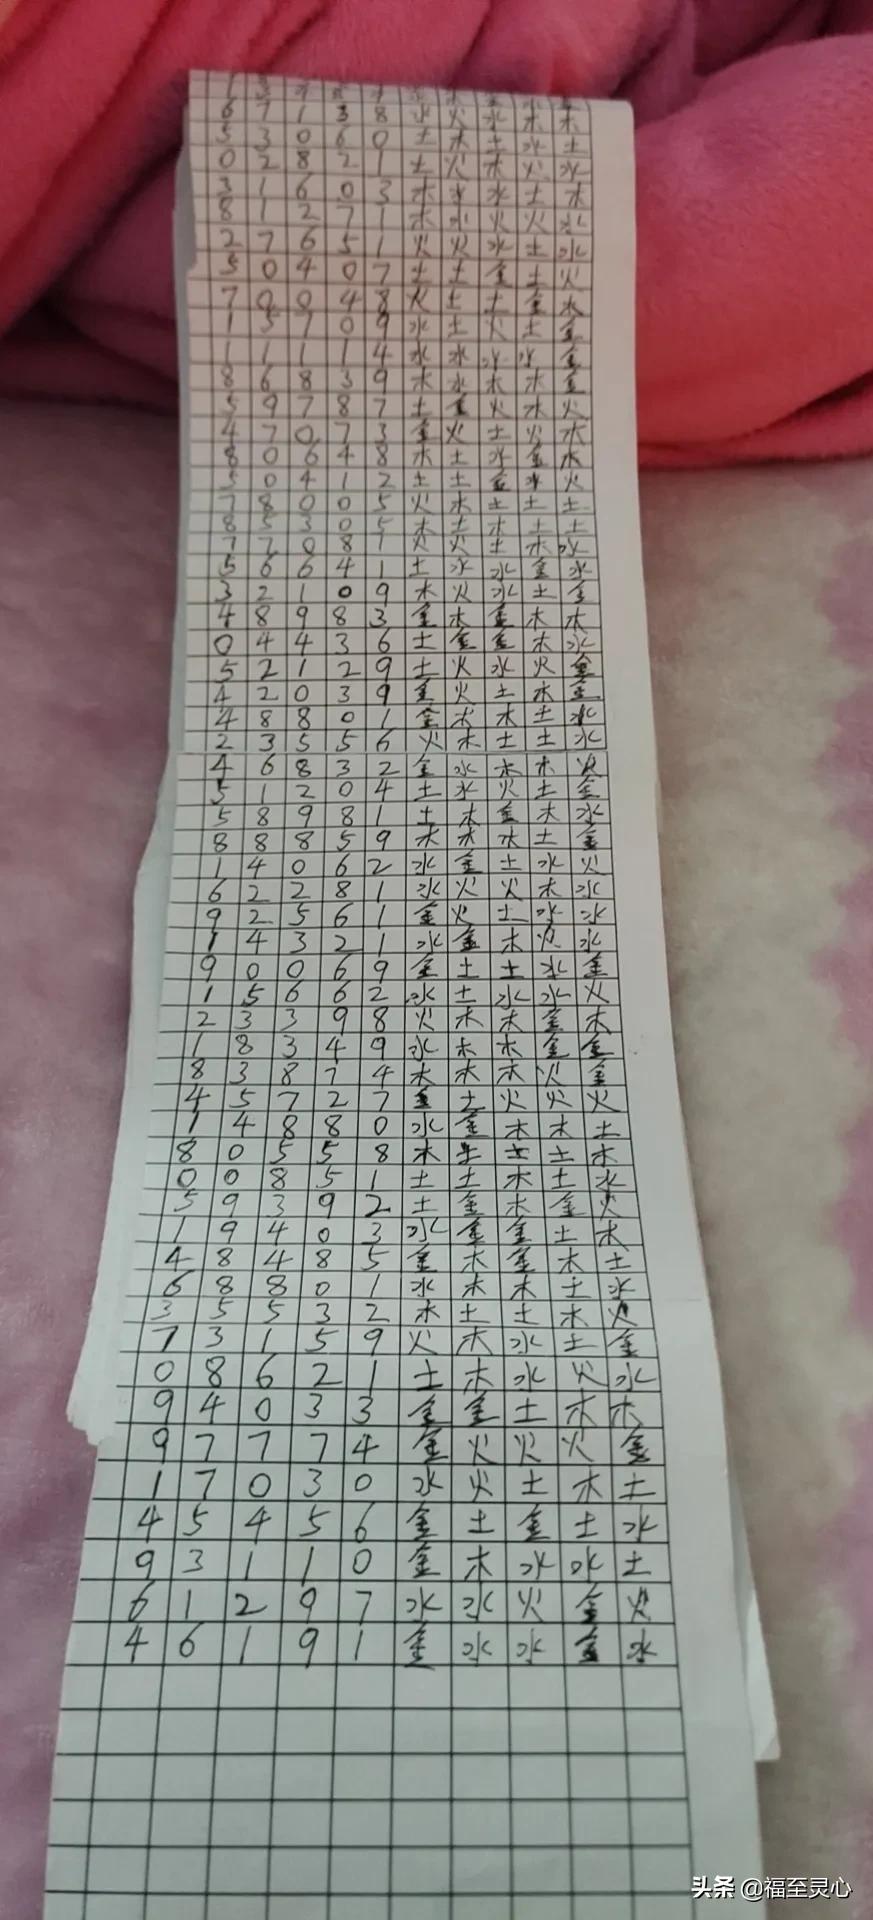 6 7 1 3 8 水 火 水 木 木
5 3 0 6 0 土 木 土 水 土
0 2 8 2 1 土 火 木 火 水
3 1 6 0 3 木 水 水 土 木
8 1 2 7 1 木 水 火 火 水
2 7 6 5 1 火 火 水 土 水
5 0 4 0 7 土 土 金 土 火
7 0 0 4 8 火 土 土 金 木
1 5 7 0 9 水 土 火 土 金
1 1 1 1 4 水 水 水 水 金
8 6 8 3 9 木 水 木 木 金
5 9 7 8 7 土 金 火 木 火
4 7 0 7 3 金 火 土 火 木
8 0 6 4 8 木 土 水 金 木
5 0 4 1 2 土 土 金 水 火
7 8 0 0 5 火 木 土 土 土
8 5 3 0 5 木 土 木 土 土
7 7 0 8 1 火 火 土 木 水
5 6 6 4 1 土 水 水 金 水
3 2 1 0 9 木 火 水 土 金
4 8 9 8 3 金 木 金 木 木
0 4 4 3 6 土 金 金 木 水
5 2 1 2 9 土 火 水 火 金
4 2 0 3 9 金 火 土 木 金
4 8 8 0 1 金 木 木 土 水
2 3 5 5 6 火 木 土 土 水
4 6 8 3 2 金 水 木 木 火
5 1 2 0 4 土 水 火 土 金
5 8 9 8 1 土 木 金 木 水
8 8 8 5 9 木 木 木 土 金
1 4 0 6 2 水 金 土 水 火
6 2 2 8 1 水 火 火 木 水
9 2 5 6 1 金 火 土 水 水
1 4 3 2 1 水 金 木 火 水
9 0 0 6 9 金 土 土 水 金
1 5 6 6 2 水 土 水 水 火
2 3 3 9 8 火 木 木 金 木
1 8 3 4 9 水 木 木 金 金
8 3 8 7 4 木 木 木 火 金
4 5 7 2 7 金 土 火 火 火
1 4 8 8 0 水 金 木 木 土
8 0 5 5 8 木 土 土 土 木
0 0 8 5 1 土 土 木 土 水
5 9 3 9 2 土 金 木 金 火
1 9 4 0 3 水 金 金 土 木
4 8 4 8 5 金 木 金 木 土
6 8 8 0 1 水 木 木 土 水
3 5 5 3 2 木 土 土 木 火
7 3 1 5 9 火 木 水 土 金
0 8 6 2 1 土 木 水 火 水
9 4 0 3 3 金 金 土 木 木
9 7 7 7 4 金 火 火 火 金
1 7 0 3 0 水 火 土 木 土
4 5 4 5 6 金 土 金 土 水
9 3 1 1 0 金 木 水 水 土
6 1 2 9 7 水 水 火 金 火
4 6 1 9 1 金 水 水 金 水
头条 @福至灵心